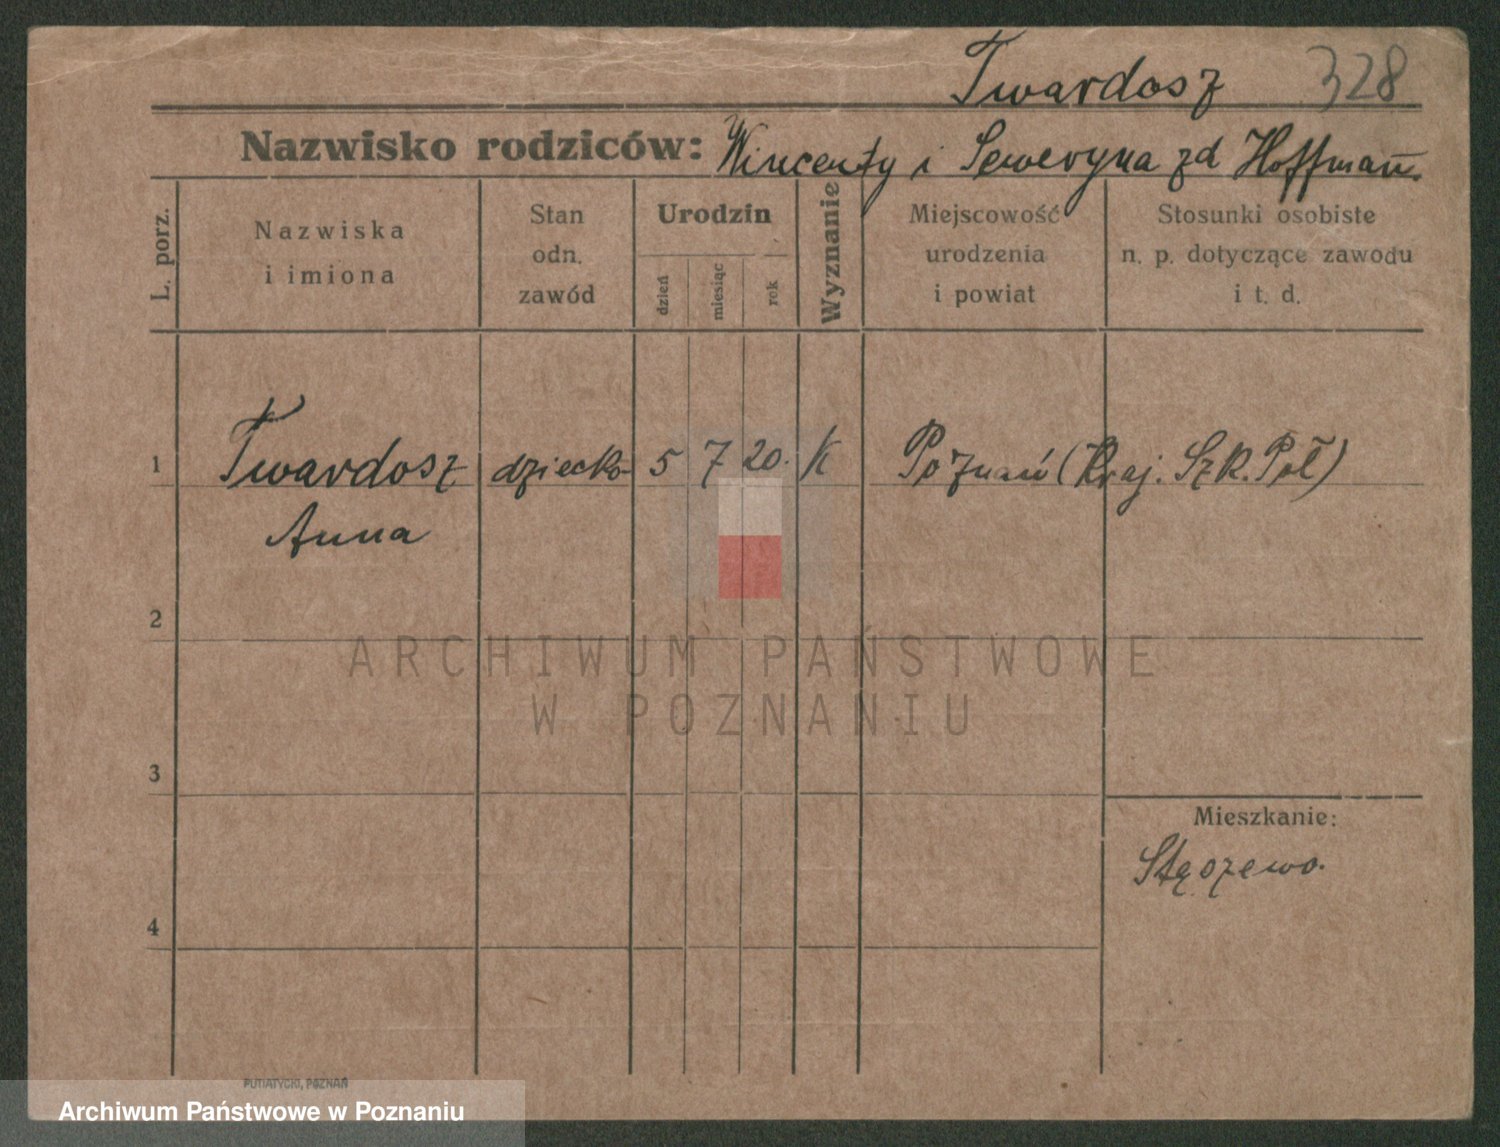 Twardosz 328
Nazwisko rodziców: Wincenty i Seweryna zd Hoffman.
L. porz.
Nazwiska
i imiona
Stan
odn.
zawód
Urodzin
dzień
miesiąc
rok
Wyznanie
Miejscowość
urodzenia
i powiat
Stosunki osobiste
n. p. dotyczące zawodu
i t. d.
1 Twardosz dziecko 5 7 20. K Poznań (Kraj. Szk. Poł)
Anna
2
ARCHIWUM PAŃSTWOWE
W POZNANIU
3
Mieszkanie:
Stęszewo.
4
PUTIATYCKI, POZNAŃ
Archiwum Państwowe w Poznaniu